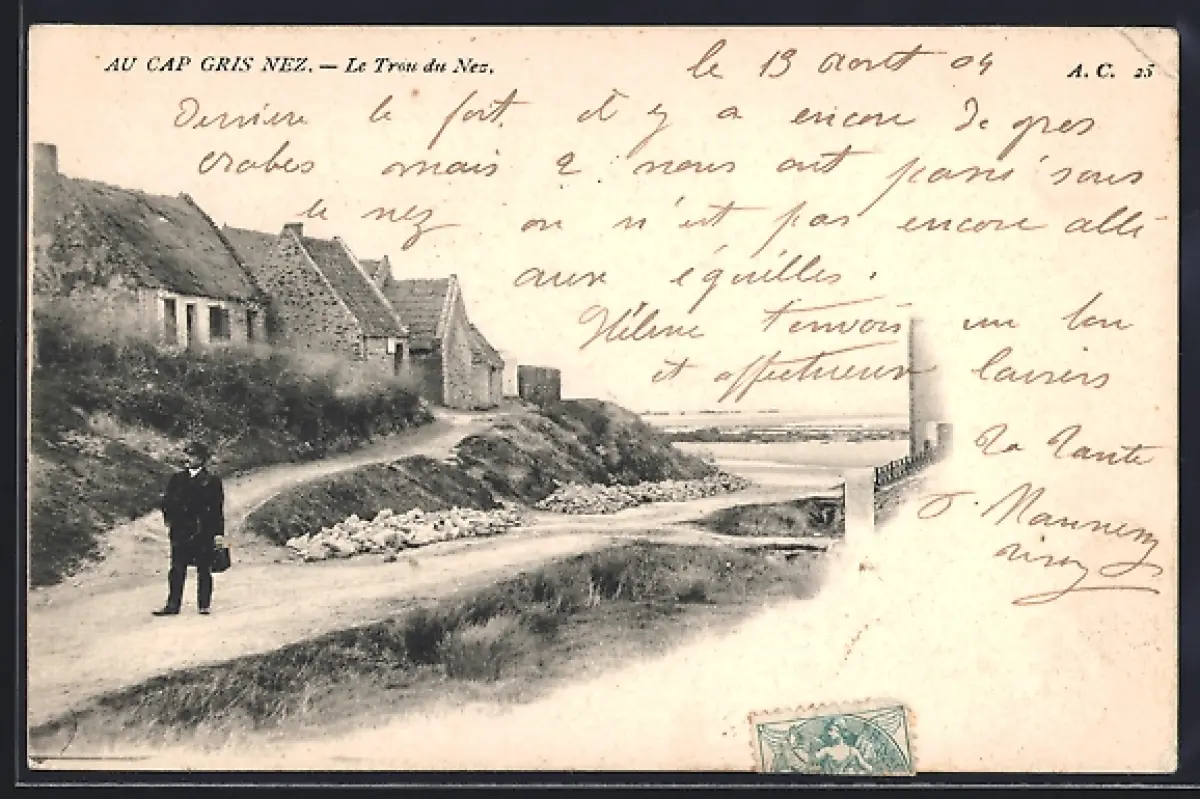 AU CAP GRIS NEZ. — Le Trou du Nez.
le 13 août 04
A. C. 25
Derrière le fort. il y a encore de gros
crabes mais 2 nous ont passé sous
le nez on n'est pas encore allé
aux équilles.
Hélène t'envois un bon
et affectueux baisers
Ta Tante